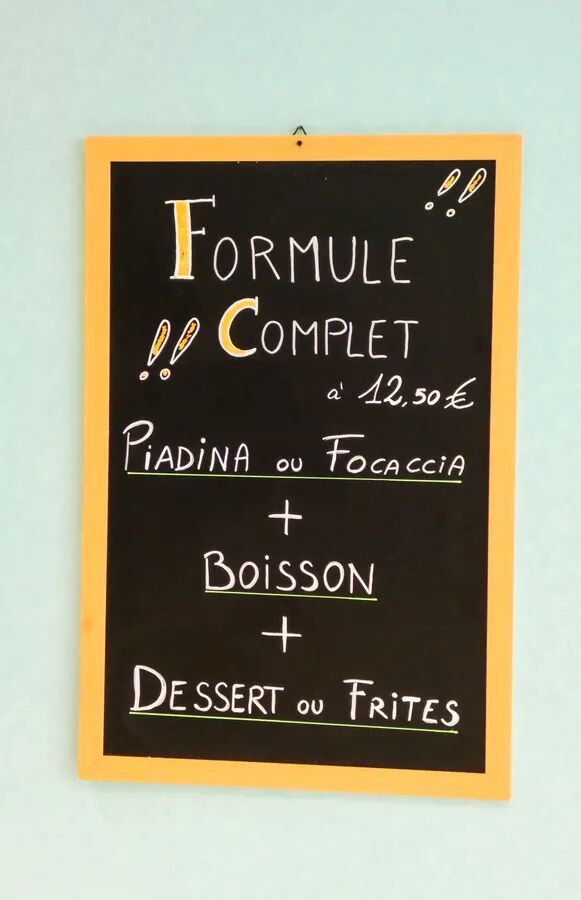 !!
FORMULE
!! COMPLET
à 12,50€
PIADINA OU FOCACCIA
+
BOISSON
+
DESSERT OU FRITES